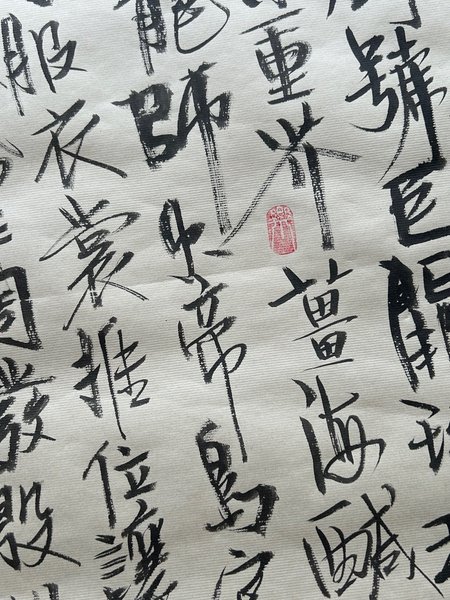 號巨闕
重芥薑海鹹
龍師火帝鳥官
服衣裳推位讓
周發殷